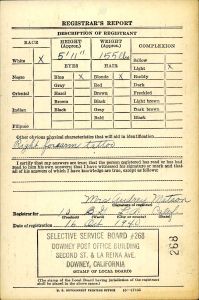 REGISTRAR'S REPORT
DESCRIPTION OF REGISTRANT
RACE
HEIGHT
(Approx.)
WEIGHT
(Approx.)
COMPLEXION
White X
5' 11"
155 lbs
Sallow
EYES
HAIR
Light X
Negro
Blue X
Blonde X
Ruddy
Gray
Red
Dark
Oriental
Hazel
Brown
Freckled
Brown
Black
Light brown
Indian
Black
Gray
Dark brown
Bald
Black
Filipino
Other obvious physical characteristics that will aid in identification
Right forearm tattoo
I certify that my answers are true; that the person registered has read or has had
read to him his own answers; that I have witnessed his signature or mark and that
all of his answers of which I have knowledge are true, except as follows:
Mrs. Audrey Watson
(Signature of registrar)
Registrar for
12
(Precinct)
(Ward)
(City or county)
(State)
Date of registration 16 Oct 1940
SELECTIVE SERVICE BOARD #268
DOWNEY POST OFFICE BUILDING
SECOND ST. & LA REINA AVE.
DOWNEY, CALIFORNIA
(STAMP OF LOCAL BOARD)
268
(The stamp of the Local Board having jurisdiction of the registrant
shall be placed in the above space)
U. S. GOVERNMENT PRINTING OFFICE